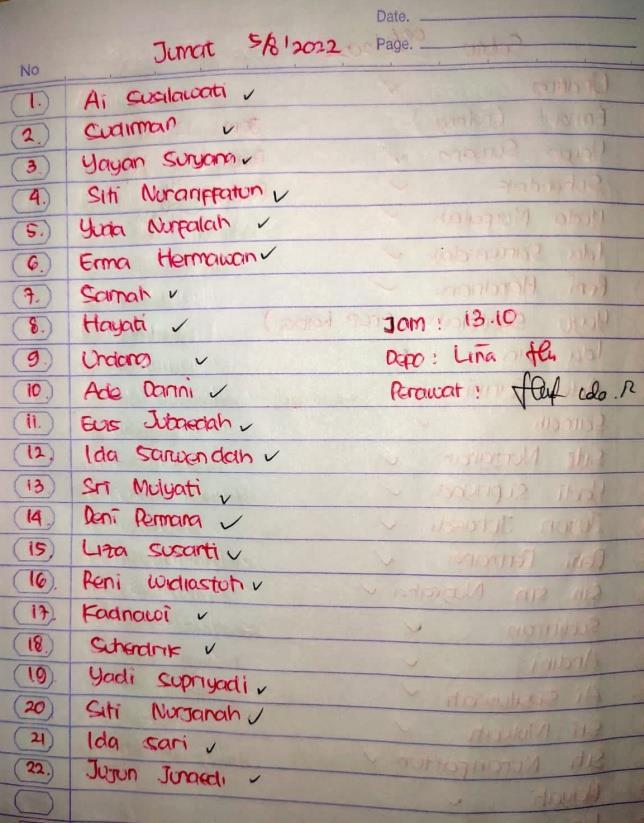 Date.
Jumat 5/8/2022 Page.
No
1. Ai Susilawati ✓
2. Sudirman ✓
3. Yayan Suryana ✓
4. Siti Nurariffatun ✓
5. Yunia Nurfalah ✓
6. Erma Hermawan ✓
7. Samah ✓
8. Hayati ✓ Jam : 13.10
9. Undang ✓ Depo : Lina
10 Ade Danni ✓ Perawat :
11. Euis Jubaedah ✓
12. Ida Sarwendah ✓
13 Sri Mulyati ✓
14 Deni Permana ✓
15 Liza Susanti ✓
16. Reni Widiastoh ✓
17. Kadnawi ✓
18. Suhendrik ✓
19 Yadi Supriyadi ✓
20 Siti Nurjanah ✓
21 Ida Sari ✓
22. Jujun Junaedi ✓